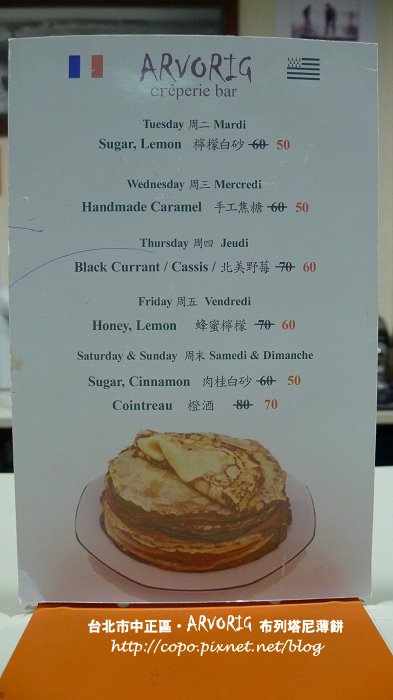 ARVORIG
crêperie bar
Tuesday 周二 Mardi
Sugar, Lemon 檸檬白砂 60 50
Wednesday 周三 Mercredi
Handmade Caramel 手工焦糖 60 50
Thursday 周四 Jeudi
Black Currant / Cassis / 北美野莓 70 60
Friday 周五 Vendredi
Honey, Lemon 蜂蜜檸檬 70 60
Saturday & Sunday 周末 Samedi & Dimanche
Sugar, Cinnamon 肉桂白砂 60 50
Cointreau 橙酒 80 70
台北市中正區・ARVORIG 布列塔尼薄餅
http://copo.pixnet.net/blog